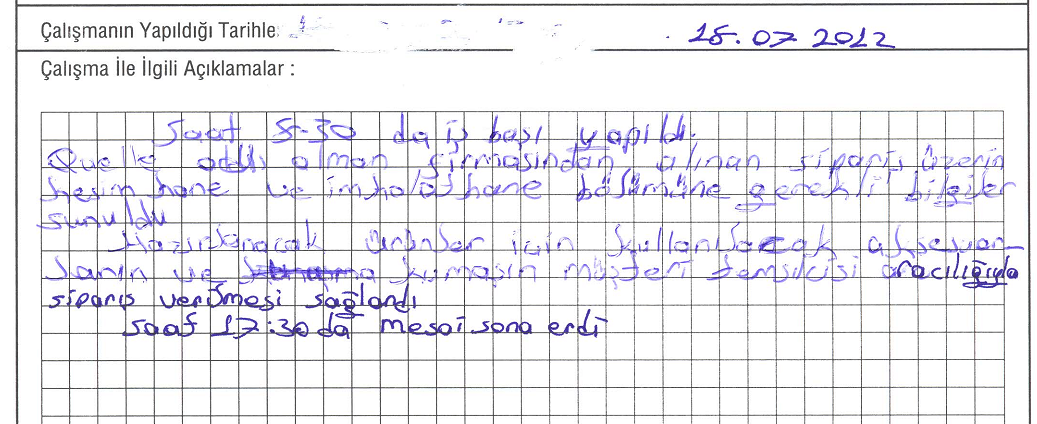 Çalışmanın Yapıldığı Tarihle: 18.07 2012
Çalışma İle İlgili Açıklamalar :
Saat 8-30 da iş başı yapıldı.
Quelle adlı alman firmasından alınan sipariş üzerin
kesim hane ve imhalathane bölümüne gerekli bilgiler
sunuldu
Hazırlanacak ürünler için kullanılacak aksesuar
ların ve kumaşın müşteri temsilcisi aracılığıyla
sipariş verilmesi sağlandı
Saat 17:30 da mesai sona erdi